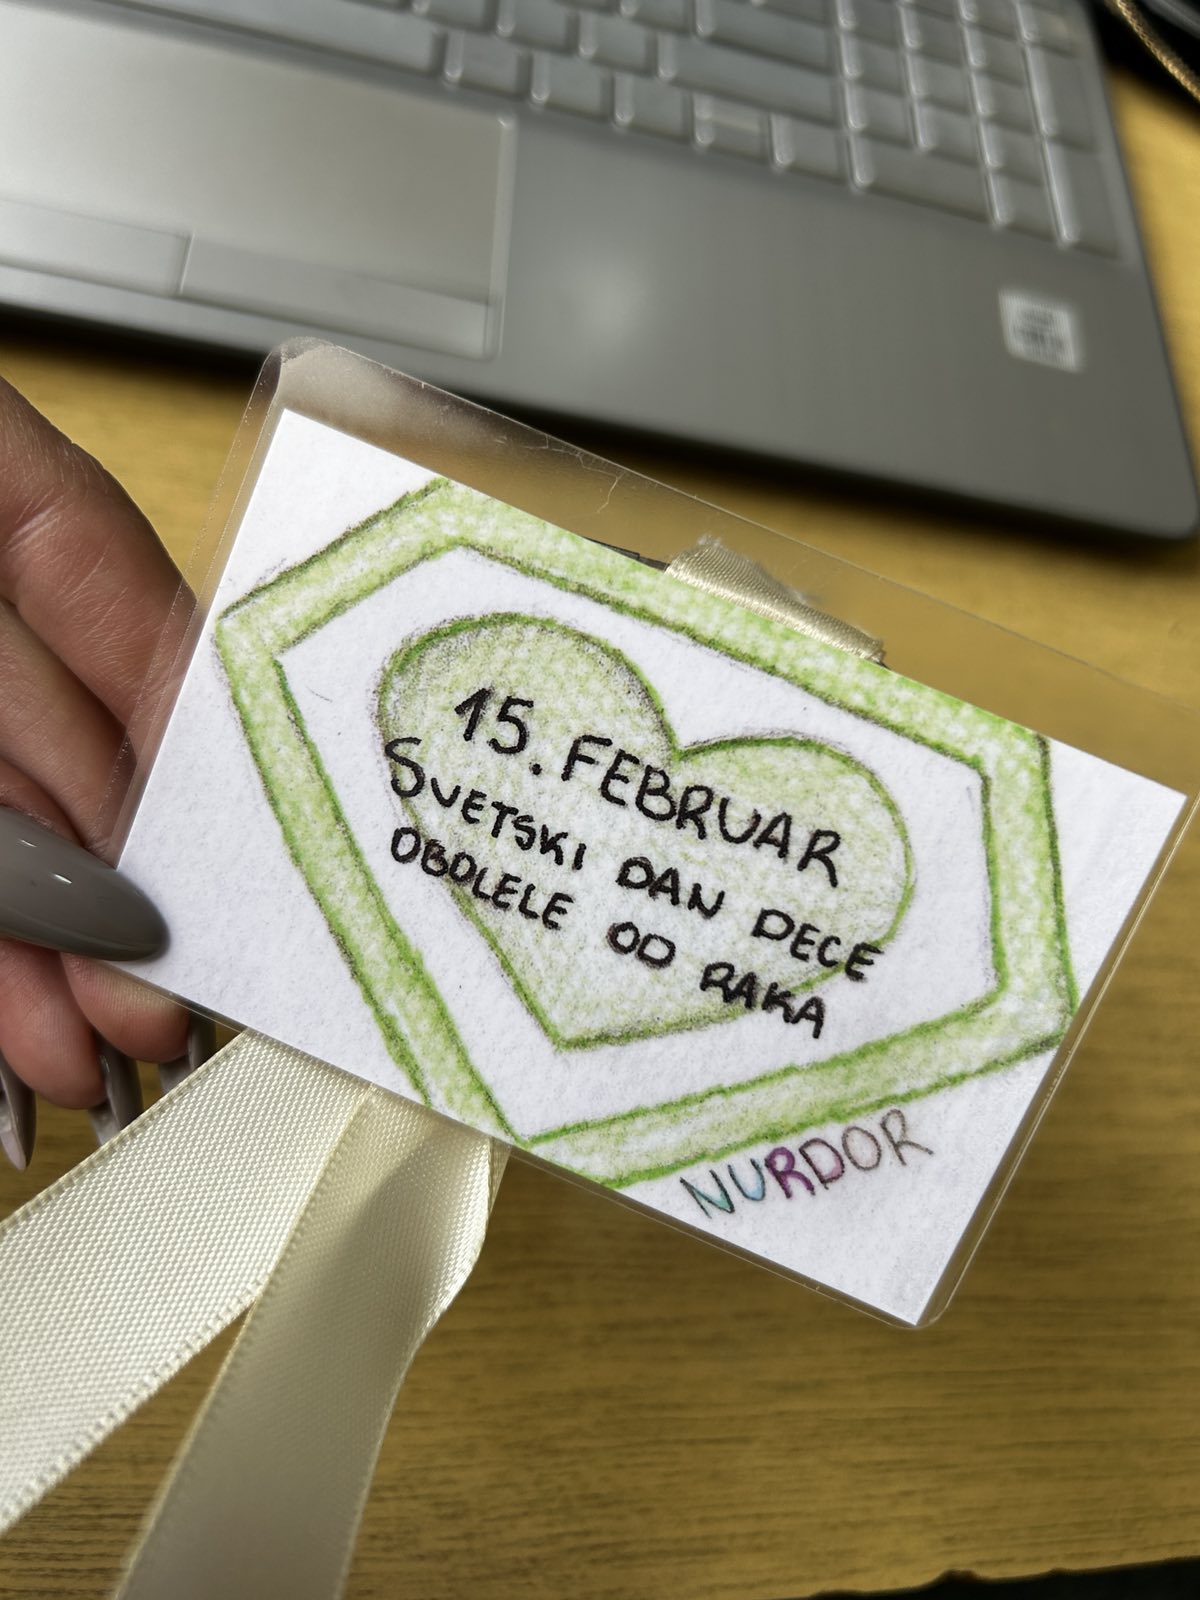 15. FEBRUAR
SVETSKI DAN DECE
OBOLELE OD RAKA
NURDOR